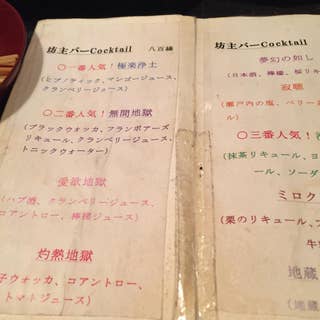 坊主バーCocktail 八百縁
〇一番人気！極楽浄土
(ヒプノティック、マンゴージュース、
クランベリージュース)
〇二番人気！無間地獄
(ブラックウォッカ、フランボアーズ
リキュール、クランベリージュース、
トニックウォーター)
愛欲地獄
(ハブ酒、クランベリージュース、
コアントロー、檸檬ジュース)
灼熱地獄
子ウォッカ、コアントロー、
トマトジュース)
坊主バーCocktail
夢幻の如し
(日本酒、檸檬、桜リキ
寂聴
(瀬戸内の塩、ベリー
〇三番人気！
(抹茶リキュール、ヨ
ール、ソーダ
ミロク
(栗のリキュール、
牛
地蔵